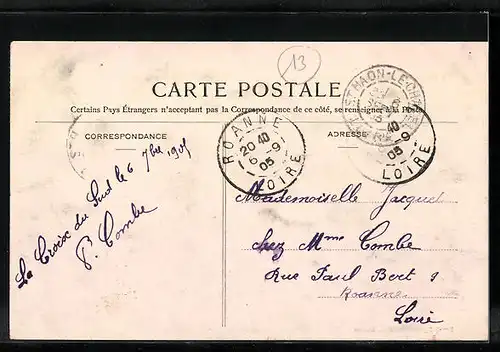 13
CARTE POSTALE
Certains Pays Étrangers n'acceptant pas la Correspondance de ce côté, se renseigner à la Poste
CORRESPONDANCE
ADRESSE
ROANNE
20 40
6-9
05
LOIRE
ST HAON-LE-CHATEL
40
-9
05
LOIRE
La Croix du Sud le 6 7bre 1905
P. Combe
Mademoiselle Jacquet
chez Mme Combe
Rue Paul Bert 9
Roanne
Loire